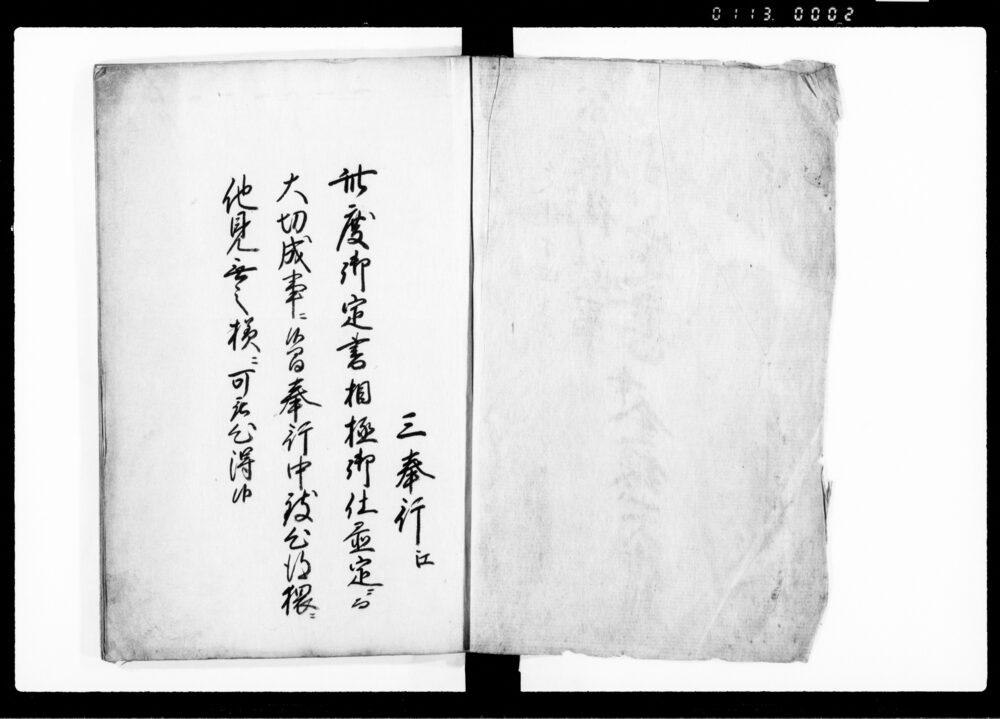 0113 0002
三奉行江
此度御定書相極御仕置定ニ而
大切成事ニ候間奉行中致心得猥ニ
他見無之様ニ可被心得候